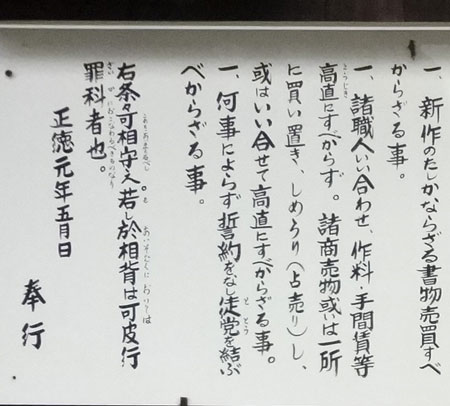 一、新作のたしかならざる書物売買すべ
からざる事。
一、諸職人いい合わせ、作料・手間賃等
高直にすべからず。諸商売物或いは一所
に買い置き、しめうり(占売り)し、
或はいい合せて高直にすべからざる事。
一、何事によらず誓約をなし徒党を結ぶ
べからざる事。
右条々可相守之。若し於相背は可皮行
罪科者也。
正徳元年五月日
奉行